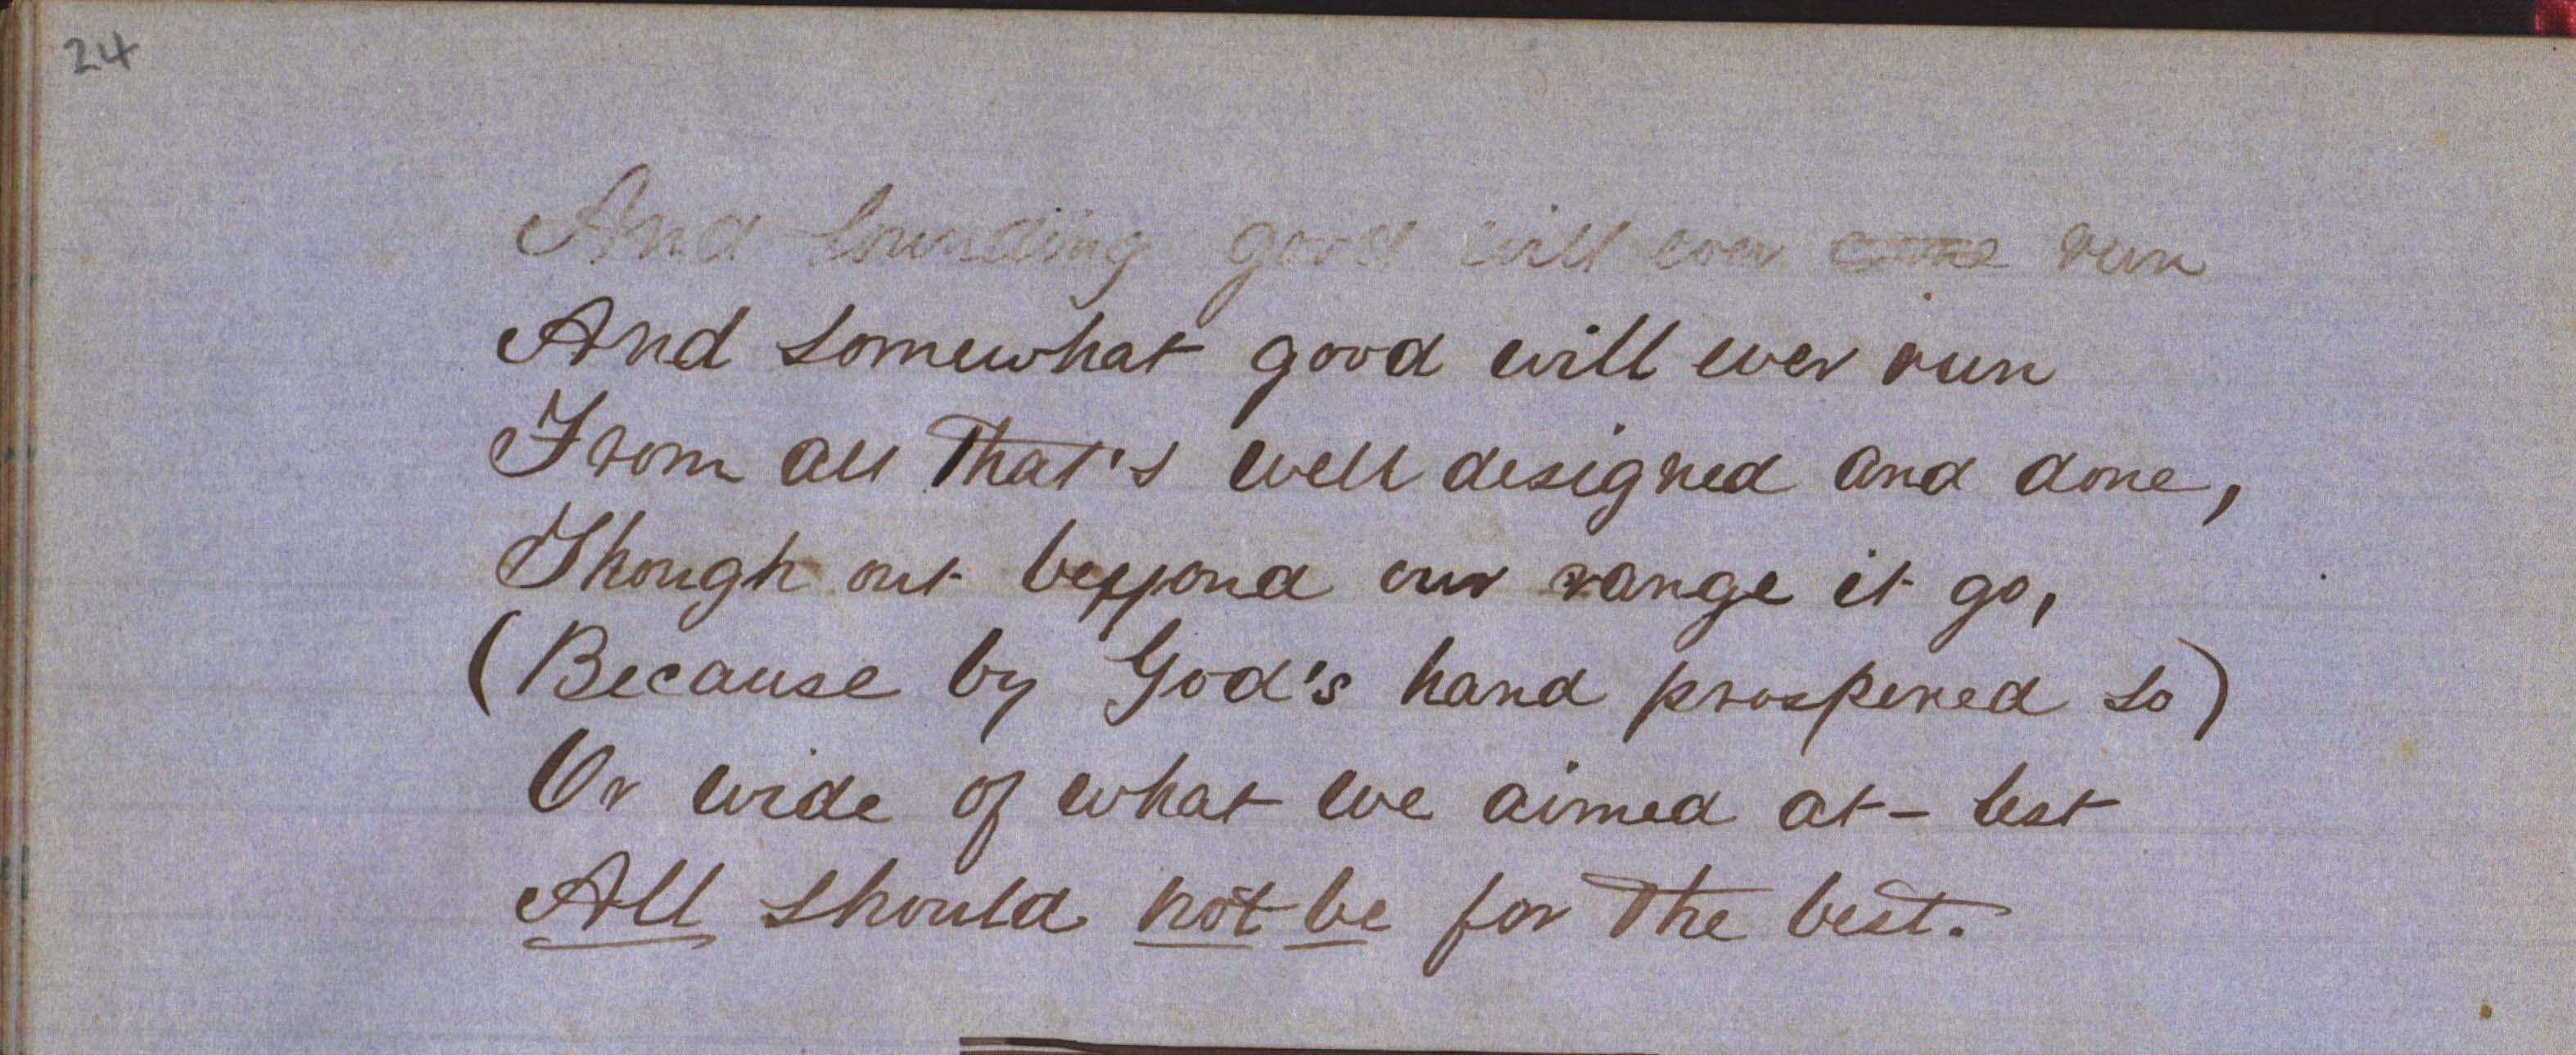 24
And sounding good will ever come run
And somewhat good will ever run
From all that's well designed and done,
Though out beyond our range it go,
(Because by God's hand prospered so)
Or wide of what we aimed at – lest
All should not be for the best.